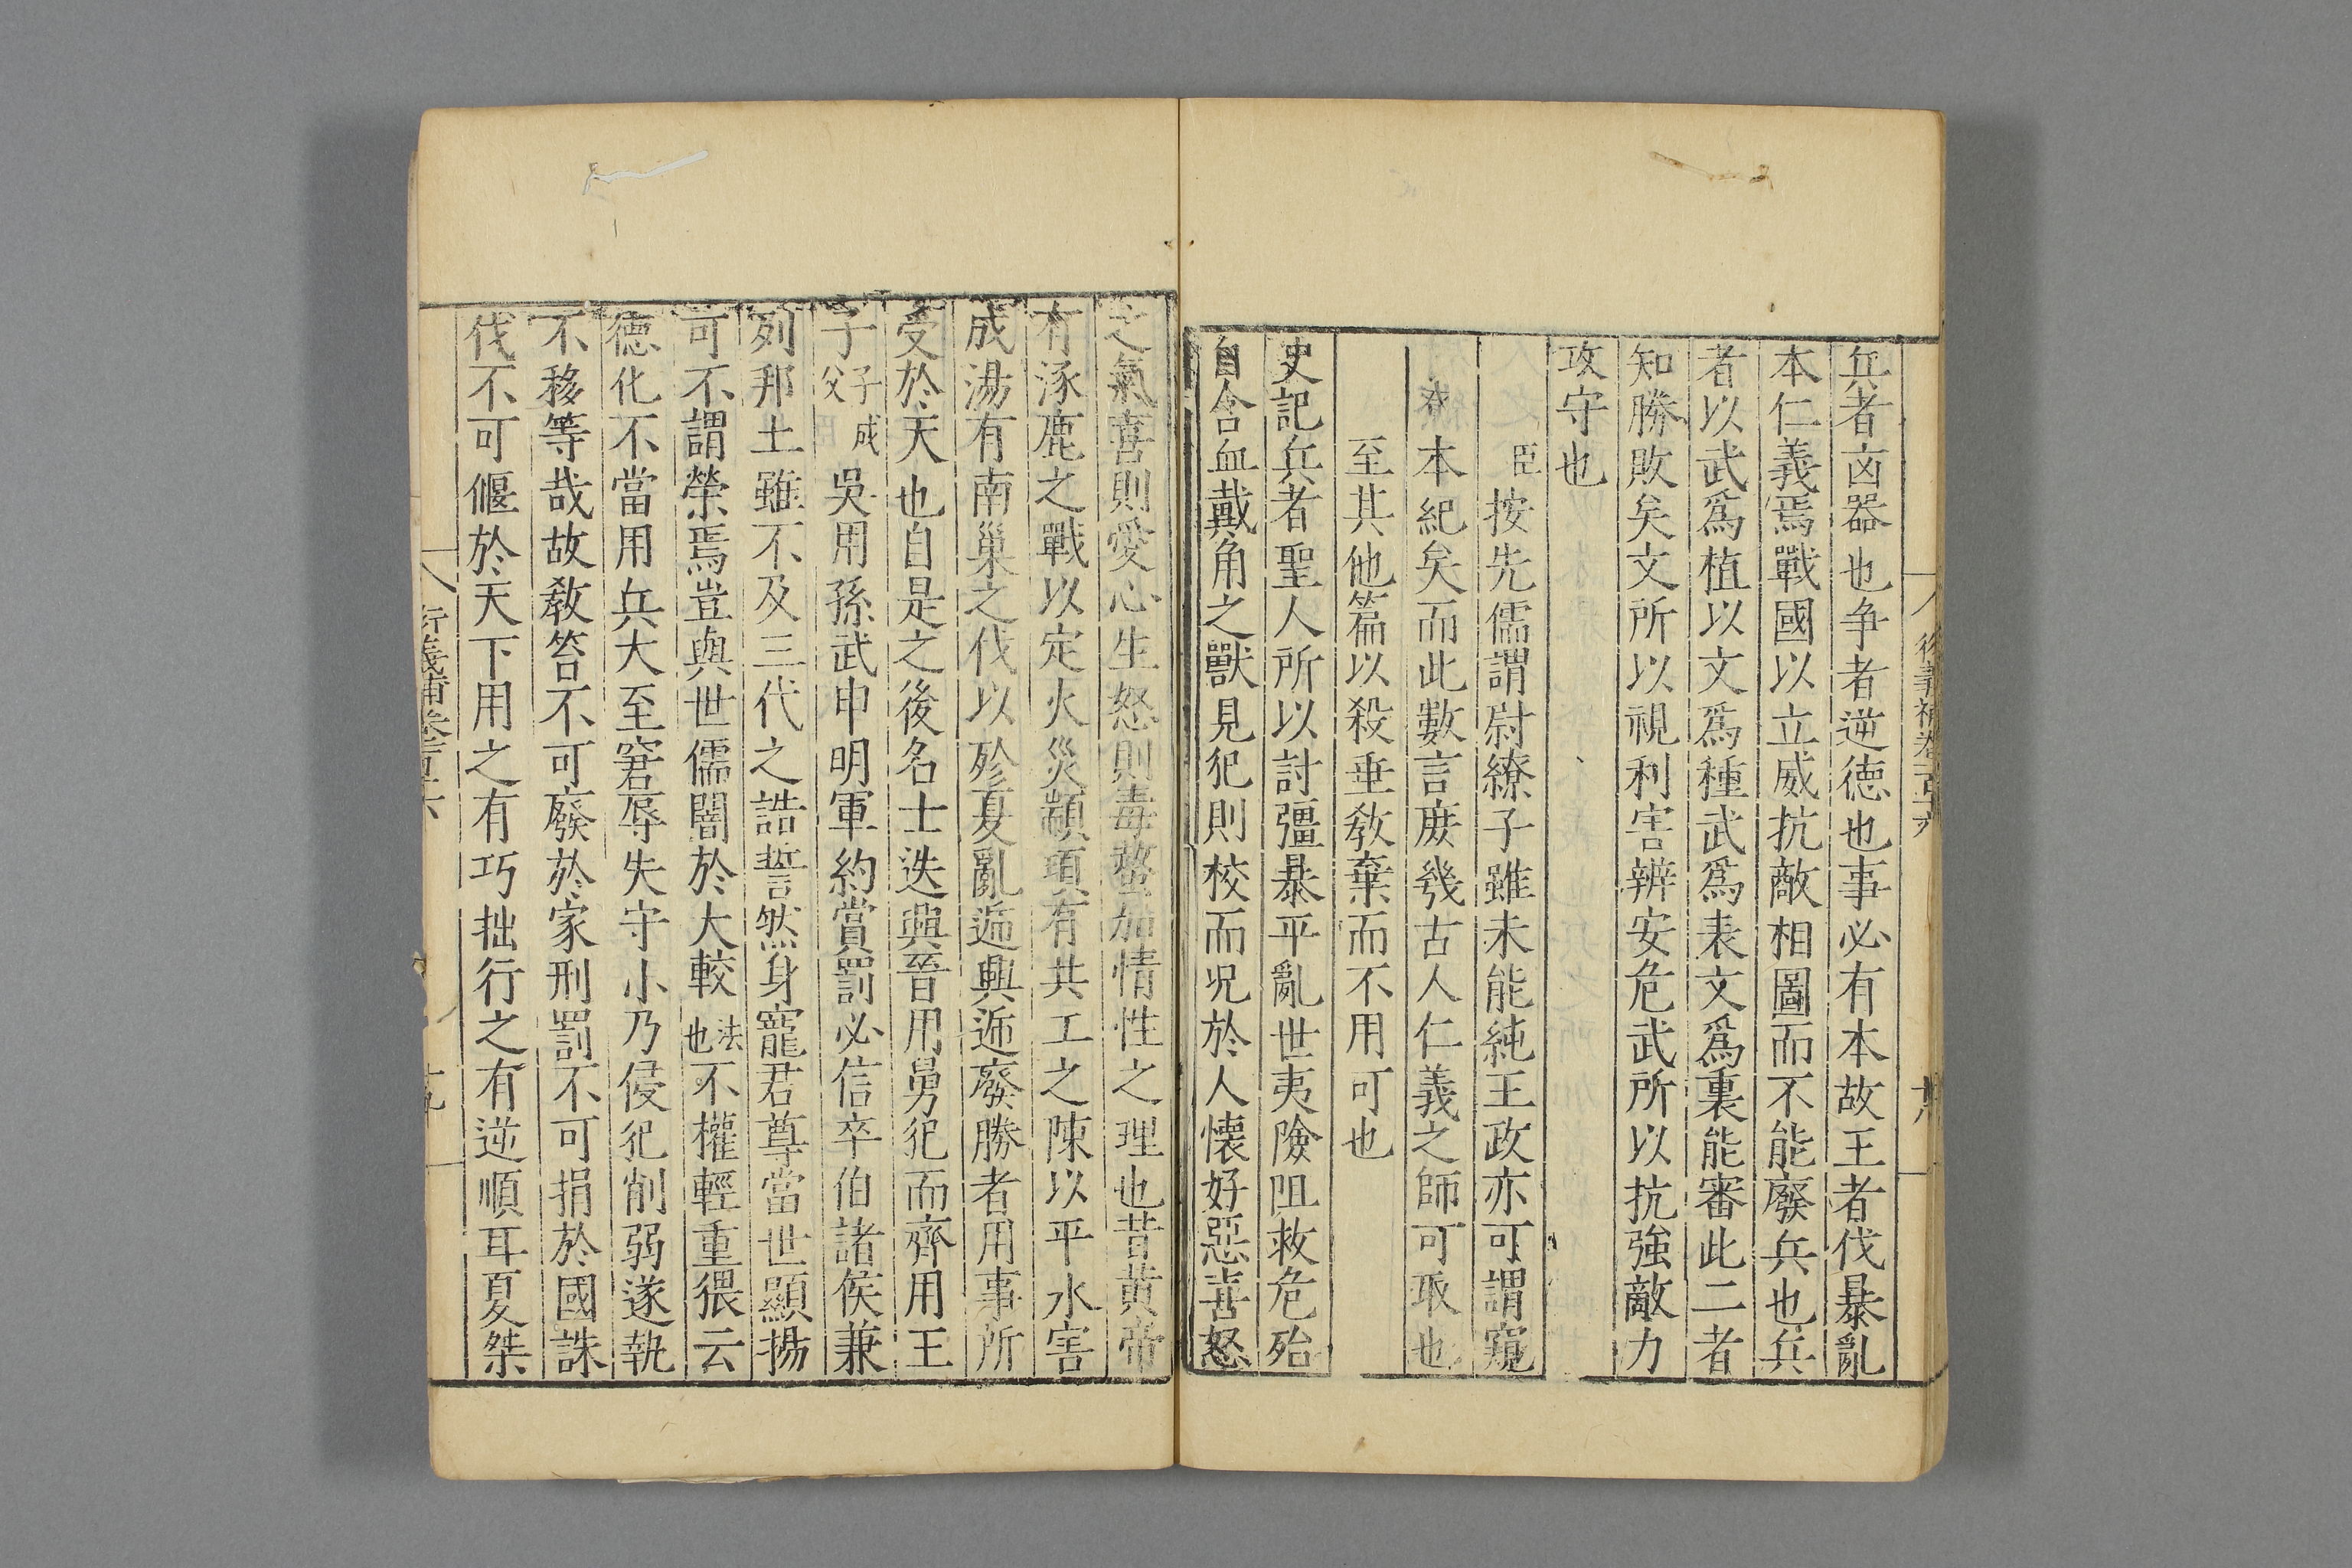 兵者凶器也争者逆德也事必有本故王者伐暴亂
本仁義焉戰國以立威抗敵相圖而不能廢兵也兵
者以武爲植以文爲種武爲表文爲裏能審此二者
知勝敗矣文所以視利害辨安危武所以抗強敵力
攻守也
臣按先儒謂尉繚子雖未能純王政亦可謂窺
本紀矣而此數言庶幾古人仁義之師可取也
至其他篇以殺垂教棄而不用可也
史記兵者聖人所以討彊暴平亂世夷險阻救危殆
自含血戴角之獸見犯則校而况於人懷好惡喜怒
之氣喜則愛心生怒則毒螫加情性之理也昔黃帝
有涿鹿之戰以定火災顓頊有共工之陳以平水害
成湯有南巢之伐以殄夏亂遞興遞廢勝者用事所
受於天也自是之後名士迭興晉用舅犯而齊用王
子子成父吳用孫武申明軍約賞罰必信卒伯諸侯兼
列邦土雖不及三代之誥誓然身寵君尊當世顯揚
可不謂榮焉豈與世儒闇於大較法也不權輕重猥云
德化不當用兵大至窘辱失守小乃侵犯削弱遂執
不移等哉故教笞不可廢於家刑罰不可捐於國誅
伐不可偃於天下用之有巧拙行之有逆順耳夏桀